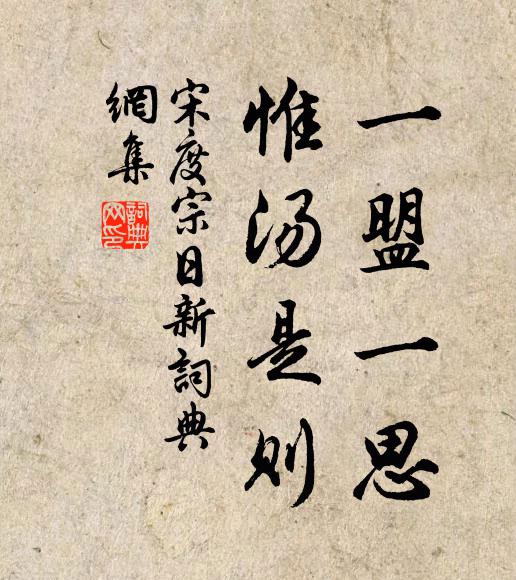 一盟一思
惟汤是则
宋度宗日新詞典
網集
詞典
网印